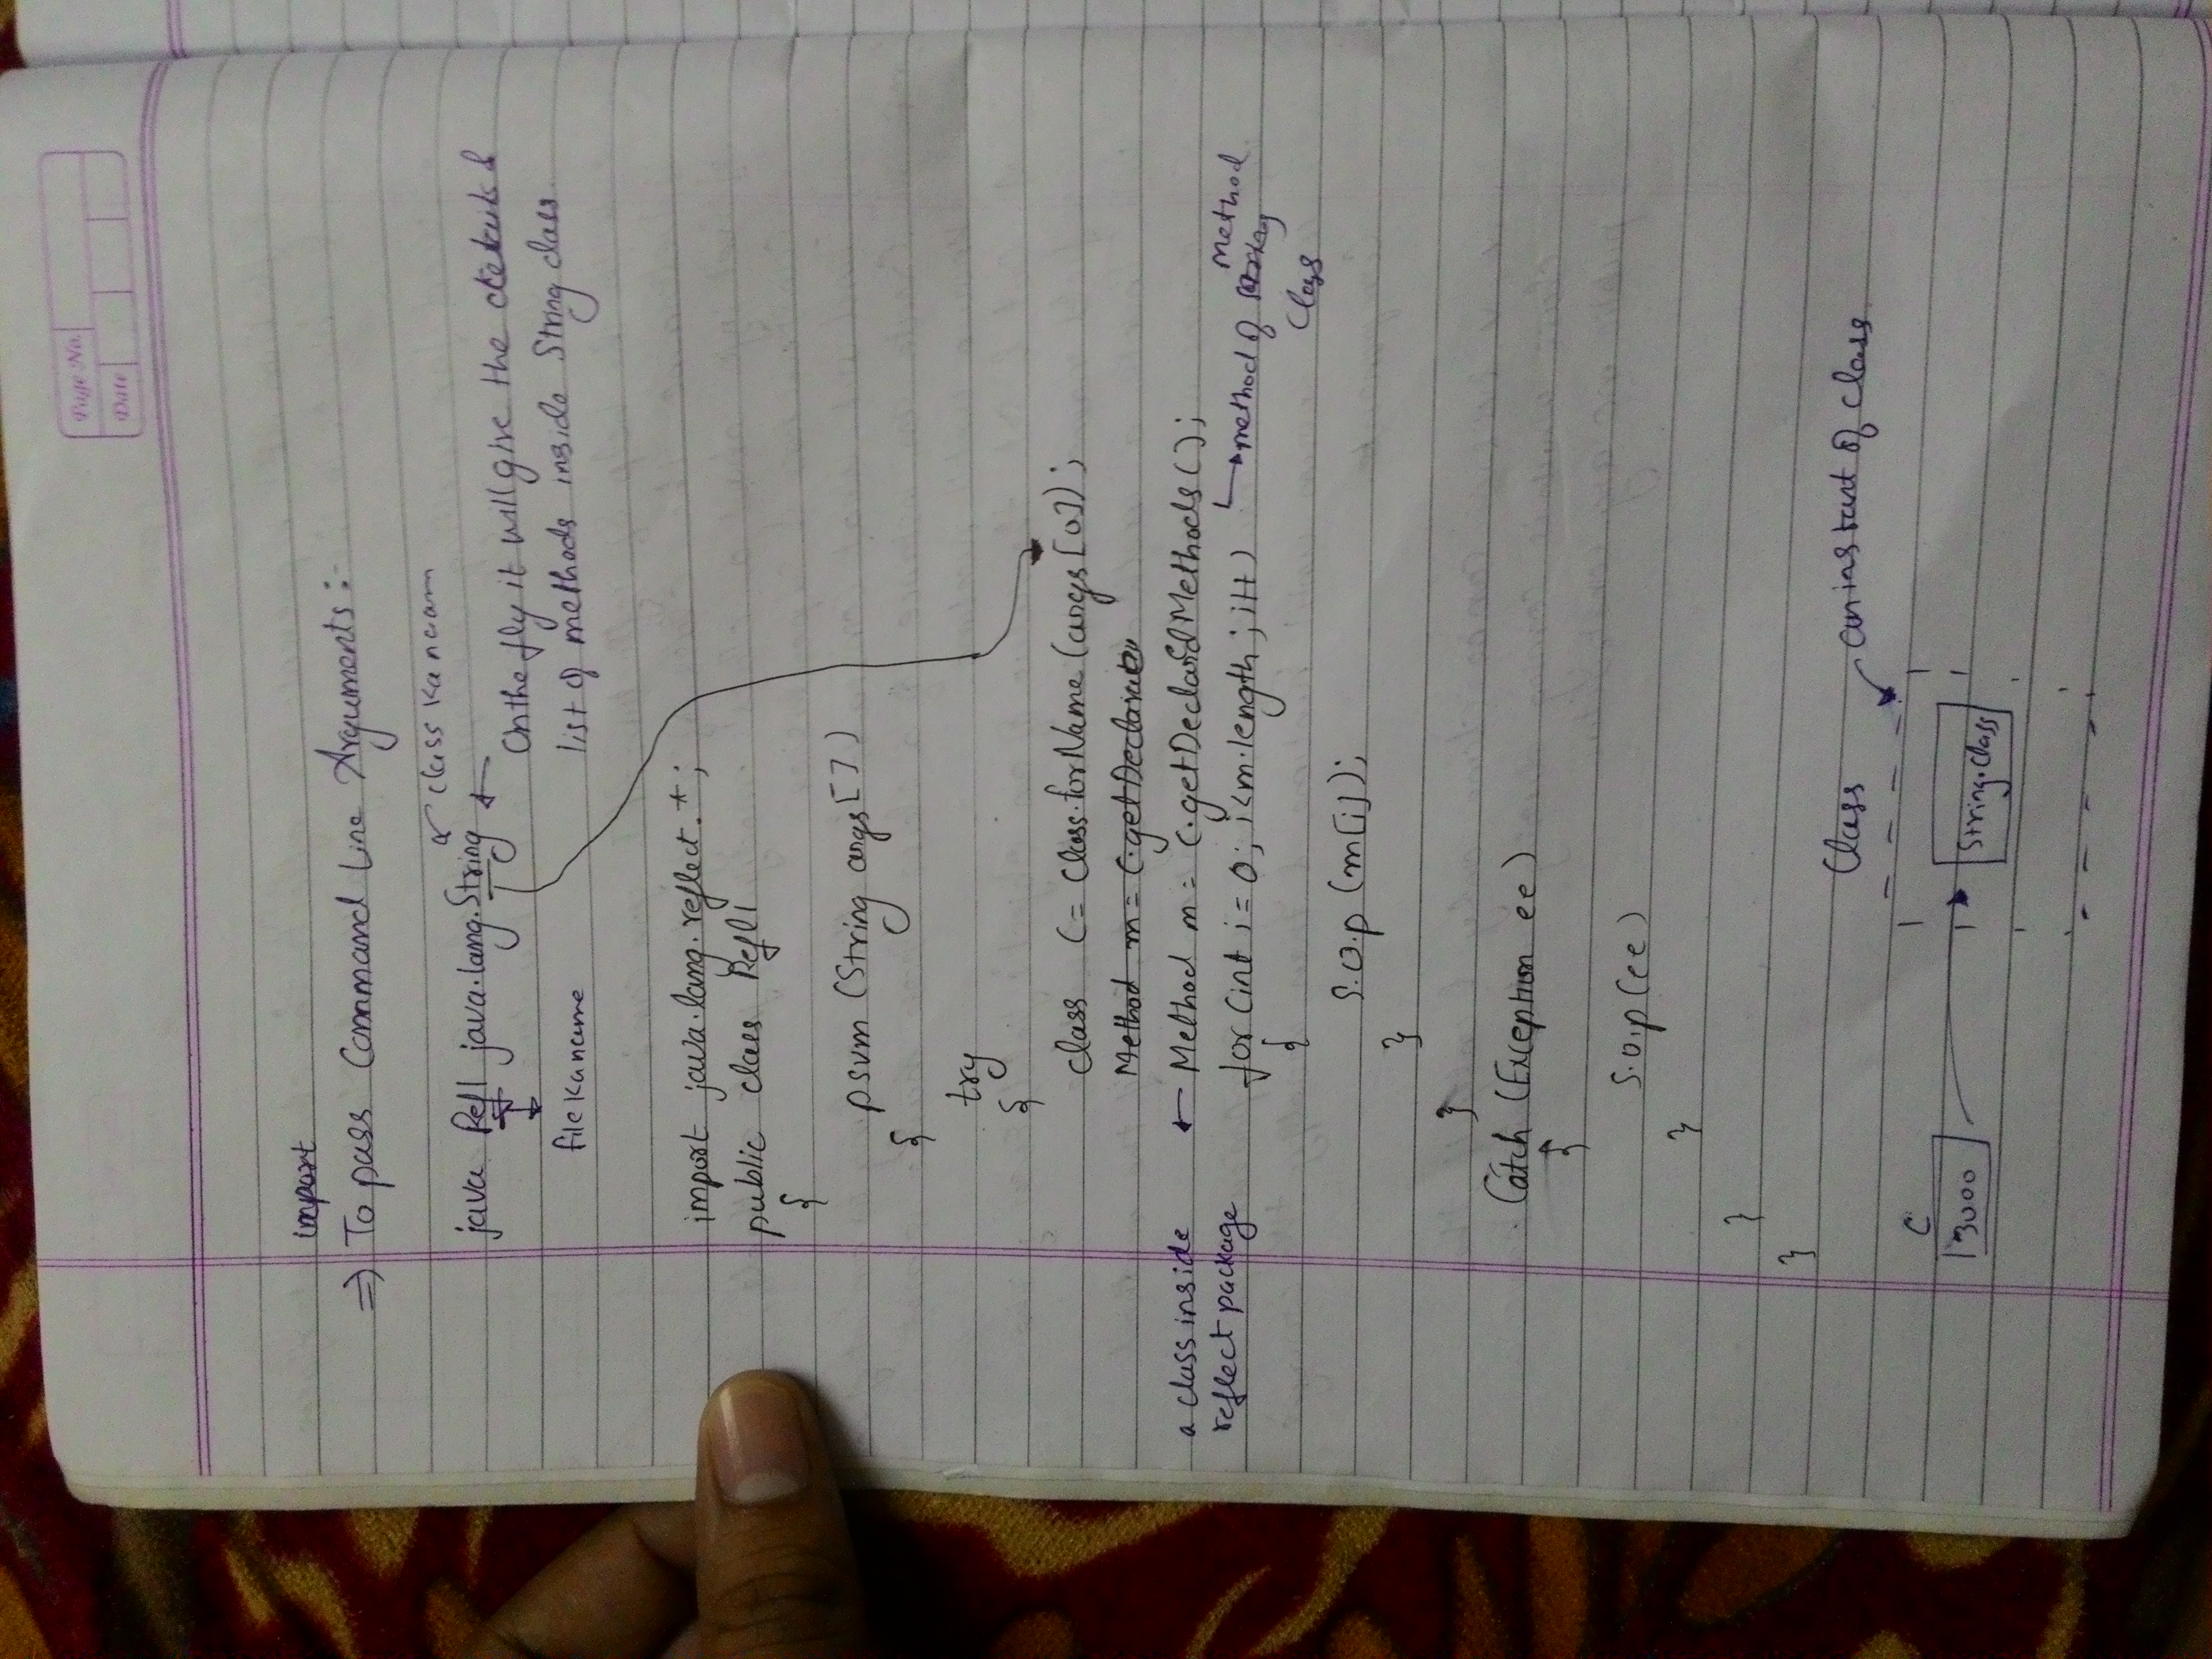 Page No.
Date
import
⇒ To pass Command Line Arguments :-
class ka naam
java Refl java.lang.String
On the fly it will give the details &
list of methods inside String class
file ka name
import java.lang.reflect.*;
public class Refl1
{
psvm (String args[])
{
try
{
class C = Class.forName (args[0]);
Method m = C.getDeclared
a class inside
reflect package
Method m = C.getDeclaredMethods();
for (int i = 0; i<m.length; i++)
method of Method
Class
{
S.O.p (m[i]);
}
}
Catch (Exception ee)
{
S.O.p (ee)
}
}
}
Class
an instant of class
C
3000
String.class